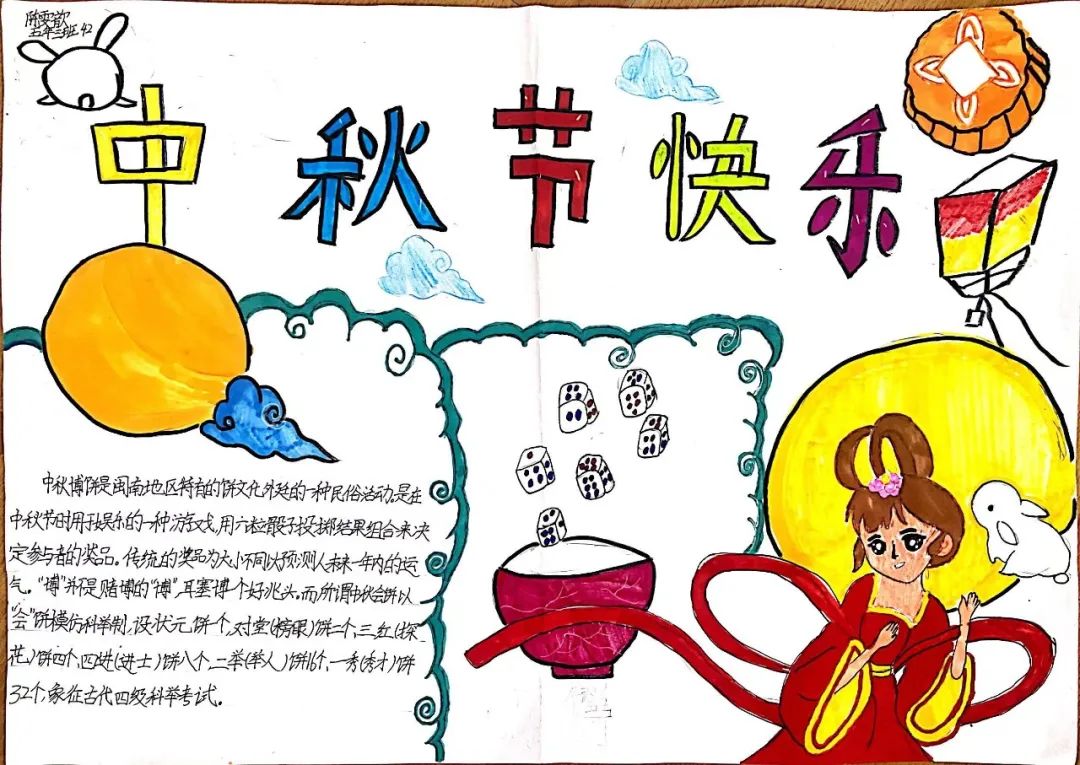 五年三班 42
中秋节快乐
中秋博饼是闽南地区特有的饼文化外延的一种民俗活动,是在
中秋节时用于娱乐的一种游戏,用六粒骰子投掷结果组合来决
定参与者的奖品。传统的奖品为大小不同以预测人未来一年内的运
气。“博”并不是赌博的“博”,耳塞博个好兆头。而所谓中秋会饼以
“会”饼模仿科举制,设状元饼个,对堂(榜眼)饼二个,三红(探
花)饼四个,四进(进士)饼八个,二举(举人)饼16个,一秀(秀才)饼
32个,象征古代四级科举考试。